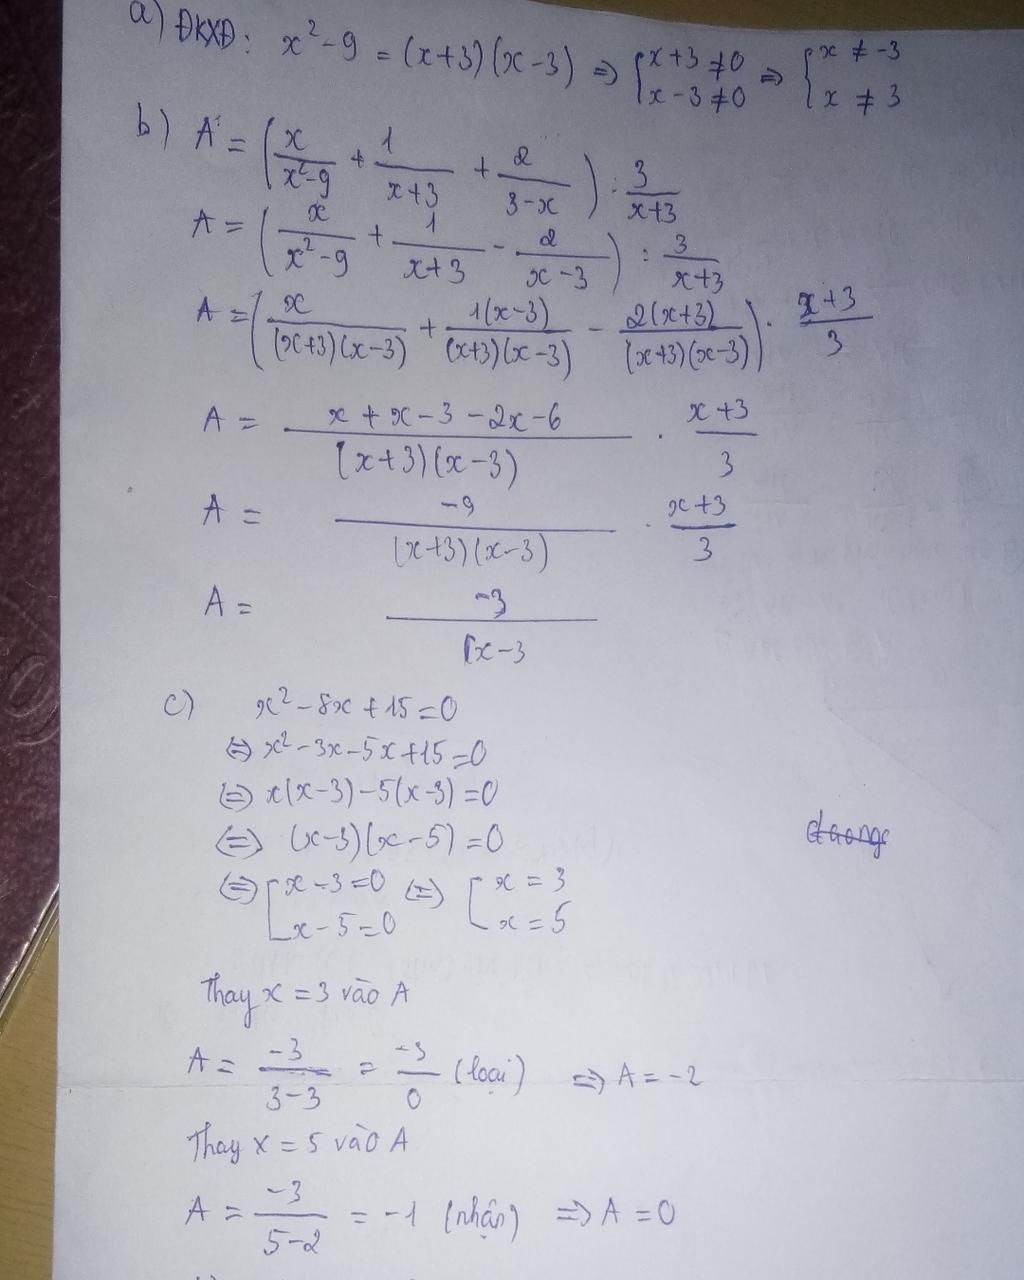 a) ĐKXĐ: x² - 9 = (x+3)(x-3) => { x+3 ≠ 0 ; x-3 ≠ 0 => { x ≠ -3 ; x ≠ 3
b) A = ( x/(x²-9) + 1/(x+3) + 2/(3-x) ) : 3/(x+3)
A = ( x/(x²-9) + 1/(x+3) - 2/(x-3) ) : 3/(x+3)
A = ( x/((x+3)(x-3)) + 1(x-3)/((x+3)(x-3)) - 2(x+3)/((x+3)(x-3)) ) . (x+3)/3
A = (x + x - 3 - 2x - 6)/((x+3)(x-3)) . (x+3)/3
A = -9/((x+3)(x-3)) . (x+3)/3
A = -3/(x-3
c) x² - 8x + 15 = 0
<=> x² - 3x - 5x + 15 = 0
<=> x(x-3) - 5(x-3) = 0
<=> (x-3)(x-5) = 0
<=> [ x-3=0 ; x-5=0 <=> [ x = 3 ; x = 5
Thay x = 3 vào A
A = -3/(3-3) = -3/0 (loại) => A = -2
Thay x = 5 vào A
A = -3/(5-2) = -1 (nhận) => A = 0